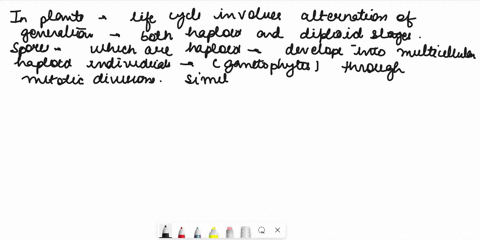 In plants → life cycle involves alternation of
generation → both haploid and diploid stages.
Spores → which are haploid → develop into multicellular
haploid individuals → (gametophytes) through
mitotic divisions. simil